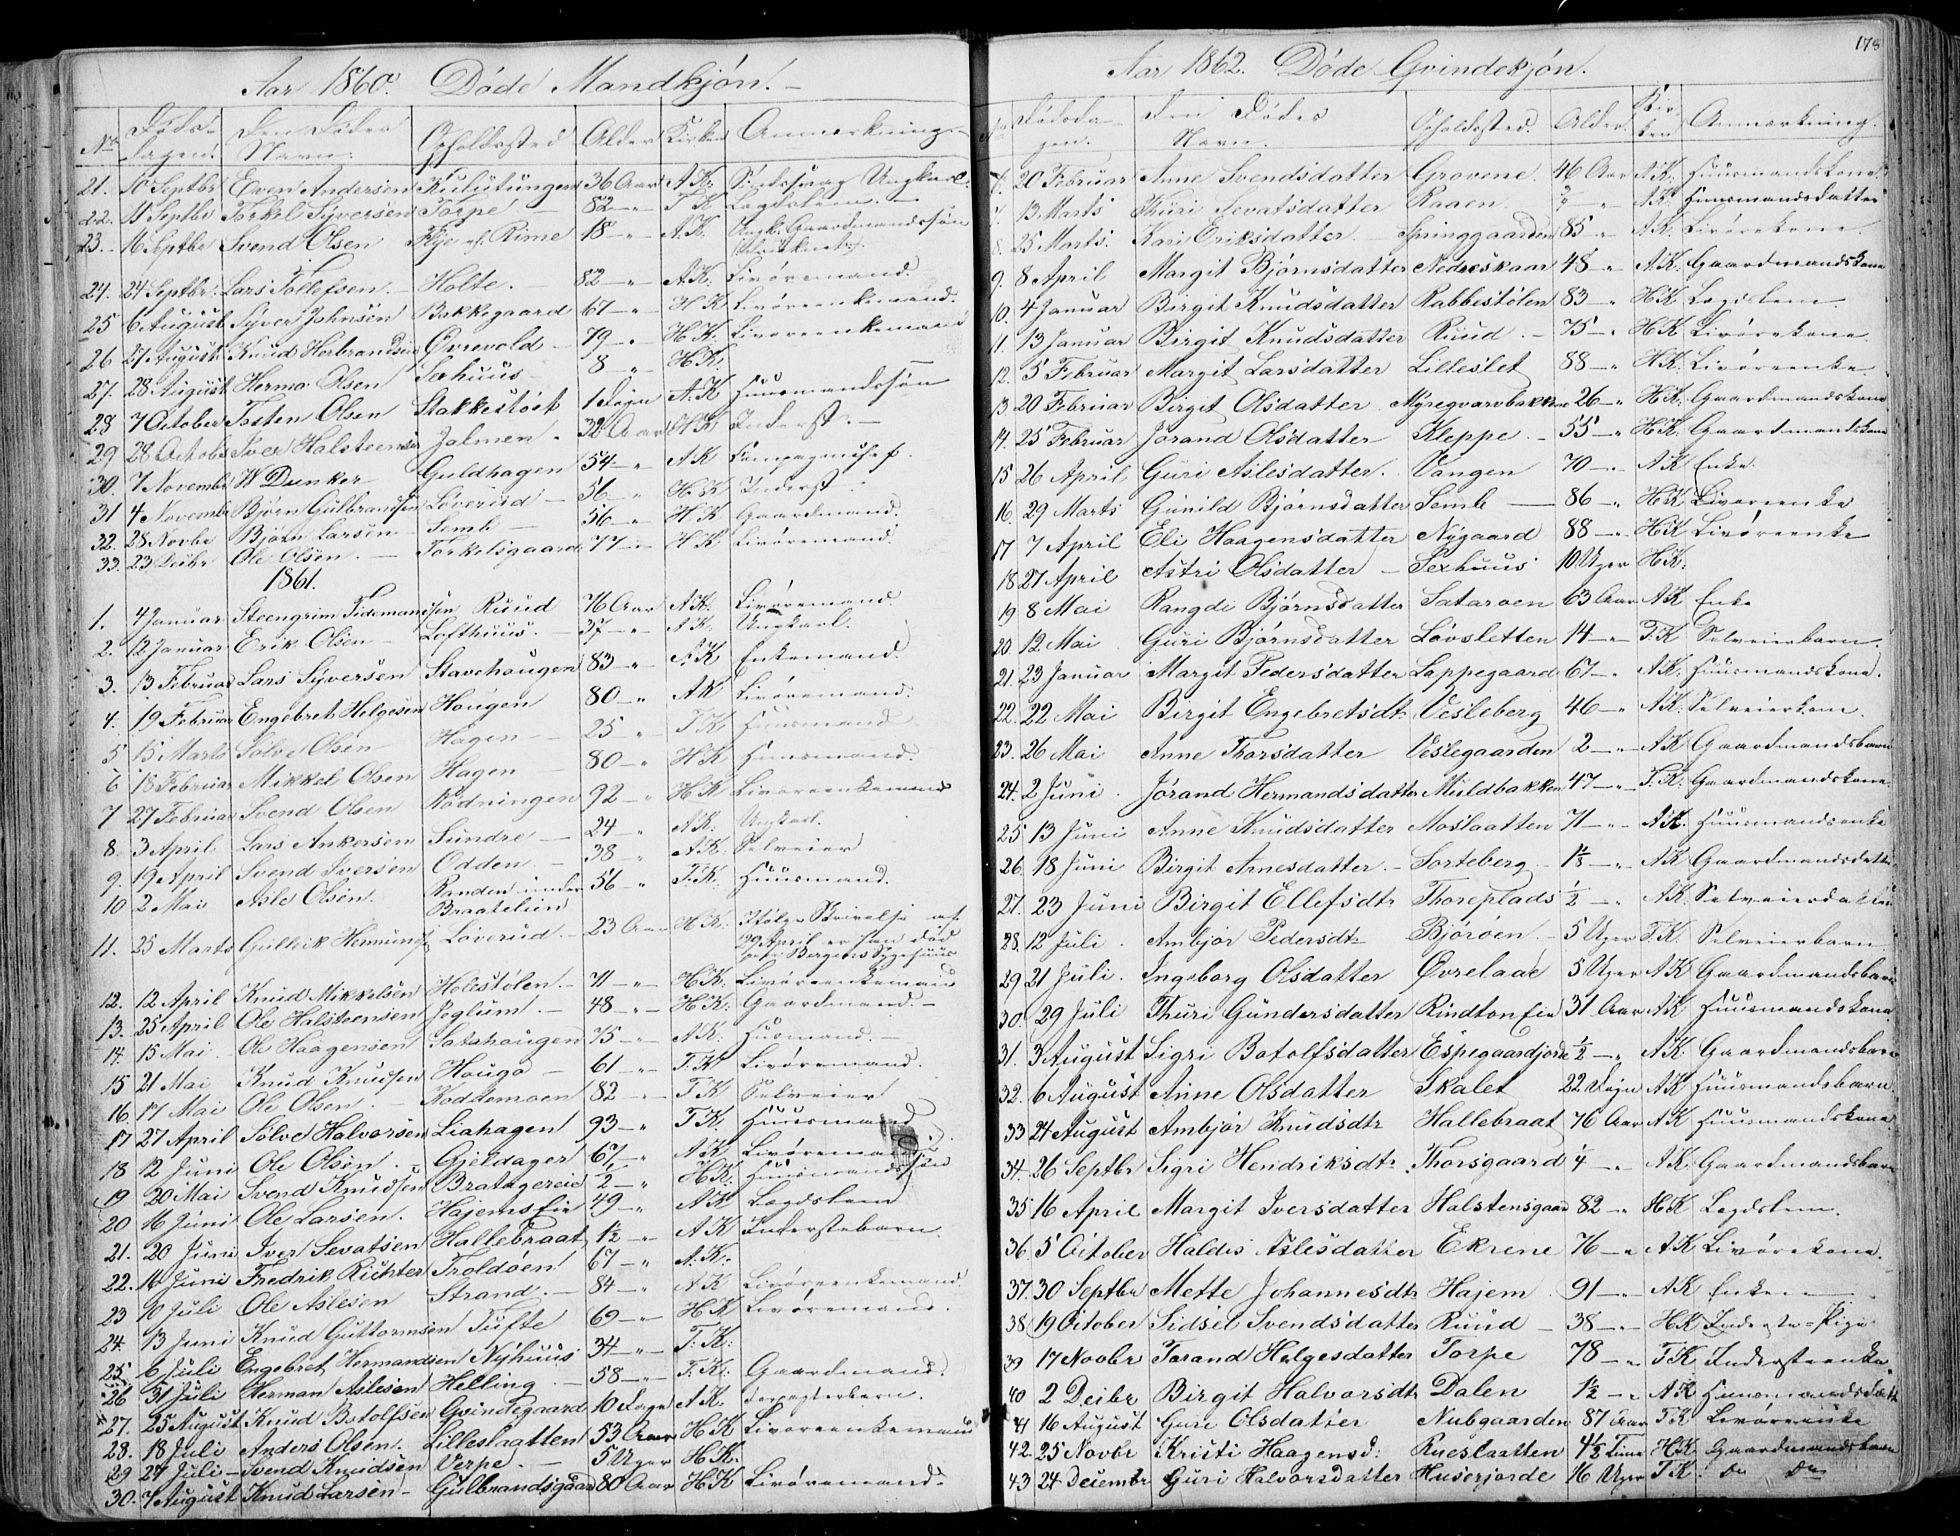 Aar 1860. Døde Mandkjøn.
No. Døds-dagen. Den Dødes Navn. Opholdssted Alder Kirken Anmærkning
21. 10 Septbr Even Andersen 36 Aar A.K. Ungkarl.
22. 11 Septbr Torkel Syversen Torpe 82 - " T.K Lægdslem.
23. 16 Septbr Svend Olsen Rime 18 - " A.K. Gaardmandssøn
24. 24 Septbr. Lars Tollefsen Holte. 82 - " A.K. Livøremand.
25 6 August Syver Johnsen Bakkegaard 67 - " H K Livøreenkemand.
26 21 August Knud Herbrandsen Øvrevold 79 " H.K. Livøreenkemand
27. 28 August Hermo Olsen Sexhuus 8 " H.K.
28 7 October Tosten Olsen Stakkestøet 1 Dage A.K Huusmandssøn
29 28 Octob Iver Halsteensen Jalmen 32 Aar H.K Inderst.
30. 7 Novembr W Dunker Guldhagen 54 - " A K Compagnichef.
31 4 Novembr Bjørn Gulbrandsen Løverud 56 " H.K Inderst
32. 28 Novbr Bjørn Larsen Semb 56 " H.K Gaardmand.
33. 23 Decbr Ole Olsen Torkelsgaard 77 - " H K Livøremand.
1861.
1. 4 Januar Steengrim Tidemandsen Ruud 76 Aar A.K. Livøremand.
2. 12 Januar Erik Olsen Lofthuus. 37 - " A K. Ungkarl.
3. 13 Februar Lars Syversen Stavehaugen 83 - " A.K Enkemand.
4. 19 Februar Engebret Helgesen Haugen 80 - " A K Livøremand.
5 15 Marts Solve Olsen Hagen 25 " T.K Huusmand
6 18 Februar Mikkel Olsen Hagen 80 - " H.K Huusmand.
7 27 Februar Svend Olsen Rodningen 92 - " H.K Livøreenkemand
8. 3 April Lars Ankersen Sundre 24 " A.K. Ungkarl.
9. 19 April Svend Iversen Odden. 38 " A.K. Selveier
10 2 Mai Asle Olsen. Randen under Braatelien 56 - " T.K. Huusmand.
11. 25 Marts Gulleik Hermunds. Løverud 23 Aar H.K. Ifølge Skrivelse af 29 April er han død paa Bergens Sygehuus
12. 12 April Knud Mikkelsen Holestølen. 71 - " H.K. Livøreenkemand
13. 25 April Ole Halsteensen Joglum. 48 - " H.K. Gaardmand.
14. 15 Mai Ole Haagensen Satahaugen 75 - " A.K. Huusmand.
15 21 Mai Knud Knudsen Hauga 61 - " T.K Livøremand.
16. 17 Mai Ole Olsen. Koddemoen 82 " T.K Selveier
17 27 April Solve Halvorsen Liahagen 93 - " T.K. Huusmand
18 12 Juni Ole Olsen. Gjeldager 67 - " A.K Livøremand
19 20 Mai Svend Knudsen Bratagereie 2 - " H.K. Huusmandssøn
20 16 Juni Ole Larsen. Hajems Eie 49 - " A.K Lægdslem
21. 20 Juni Iver Sevatsen Hallebraat 1½ " A K Inderstebarn.
22. 16 Juni Fredrik Richter Troldøen 67 - " A.K.
23 10 Juli Ole Aslesen Strand. 84 " A.K Livøreenkemand.
24. 13 Juni Knud Guttormsen Tufte 69 - " H.K Livøremand.
25. 6 Juli Engebret Hermandsen Nyhuus 34 - " T.K.
26 31 Juli Herman Aslesen Helling 58 - " T.K. Gaardmand.
27. 25 August Knud Botolfsen Gvindegaard 10 Dage A.K. Forpagterbarn.
28. 18 Juli Anders Olsen. Lilleslaatten 53 Aar H.K Livøreenkemand
29 27 Juli Svend Knudsen Verpe. 5 Uger H.K.
30. 7 August Knud Larsen Gulbrandsgaard 80 Aar H.K Livøremand.
178
Aar 1862. Døde Qvindekjøn.
Dødsdagen. Den Dødes Navn. Opholdssted. Alder. Kirken Anmærkning.
20 Februar Anne Svendsdatter Grovene. 46 Aar A.K. Huusmandskone.
7. 13 Marts Thuri Sevatsdatter Raaen. A.K. Huusmandsdatter
8. 25 Marts. Kari Eriksdatter. Springgaarden 85 " A.K. Livørekone.
9. 8 April Margit Bjørnsdatter Nedreskaar 48 " A.K. Gaardmandskone
10. 4 Januar Birgit Knudsdatter Rabbestølen 83 " H.K Lægdslem
11. 13 Januar Birgit Knudsdatter Ruud. 75 " H.K Livørekone.
12. 5 Februar Margit Larsdatter Lilleslet 88 - " H.K. Livøreenke.
13 20 Februar Birgit Olsdatter. Myregvarvbakken 26 " H.K. Gaardmandskone
14. 25 Februar Jorand Olsdatter Kleppe. 55 " H.K Gaardmandskone
15 26 April Guri Aslesdatter. Vangen 70 - " A K Enke.
16. 29 Marts Gunild Bjørnsdatter Semb 86 - " H.K Livøreenke
17 7 April Eli Haagensdatter Nygaard 88 - " H K Livøreenke
18 27 April Astri Olsdatter Sexhuus 10 Uger H.K.
19 8 Mai Rangdi Bjørnsdatter Sataroen 63 Aar A K Enke
20. 12 Mai Guri Bjørnsdatter Lovsletten 14 - " T.K Selveierbarn.
21. 23 Januar Margit Pedersdatter Lappegaard 67 - " A.K. Huusmandskone.
22. 22 Mai Birgit Engebretsdtr Vesleberg 46 - " A.K. Selveierkone.
23. 26 Mai Anne Thorsdatter Veslegaarden 2 - " A K Gaardmandsbarn
24. 2 Juni Jorand Hermandsdatter Muldbakken 47 - " T.K. Gaardmandskone
25 13 Juni Anne Knudsdatter Moslaatten 71 - " A.K. Huusmandsenke
26. 18 Juni Birgit Arnesdatter. Sorteberg A K Gaardmandsdatter
27. 23 Juni Birgit Ellefsdtr Thoreplads ½ - " A.K. Selveierdatter
28. 12 Juli Ambjor Pedersdtr Bjorøen. 5 Uger T.K. Selveierbarn
29 21 Juli. Ingeborg Olsdatter Øvrelaae 5 Uger A K Gaardmandsbarn
30. 29 Juli Thuri Gundersdatter Rindton Eie 31 Aar A K Huusmandskone
31. 3 August Sigri Botolfsdatter Espegaardjorde ½ - " A.K. Gaardmandsbarn
32. 6 August Anne Olsdatter Skalet 22 Dage A K Huusmandsbarn
33 24 August Ambjor Knudsdtr Hallebraat 76 Aar A K Huusmandskone
34. 26 Septbr Sigri Hendriksdtr Thorsgaard ¼ - " A.K Gaardmandsbarn
35 16 April Margit Iversdatter Halstensgaard 82 - " H.K Lægdslem.
36. 5 October Haldis Aslesdatter Ekrene 76 - " A K Livørekone.
37. 30 Septbr Mette Johannesdtr Hajem 91 - " A K Enke
38 19 October Sidsel Svendsdatter Ruud 38 - " H K Inderste-Pige
39 17 Novbr Jorand Helgesdatter Torpe 78 - " T K Indersteenke
40 2 Decbr Birgit Halvorsdtr Dalen 1½ - " A K Huusmandsdatter
41 16 August Guri Olsdatter Nubgaarden 87 Aar T.K Livøreenke
42. 25 Novbr Kristi Haagensd: Rueslaatten 4½ Time H.K Gaardmandsbarn
43 24 Decembr Guri Halvorsdatter Huserjorde 16 Uger T K. Do Do